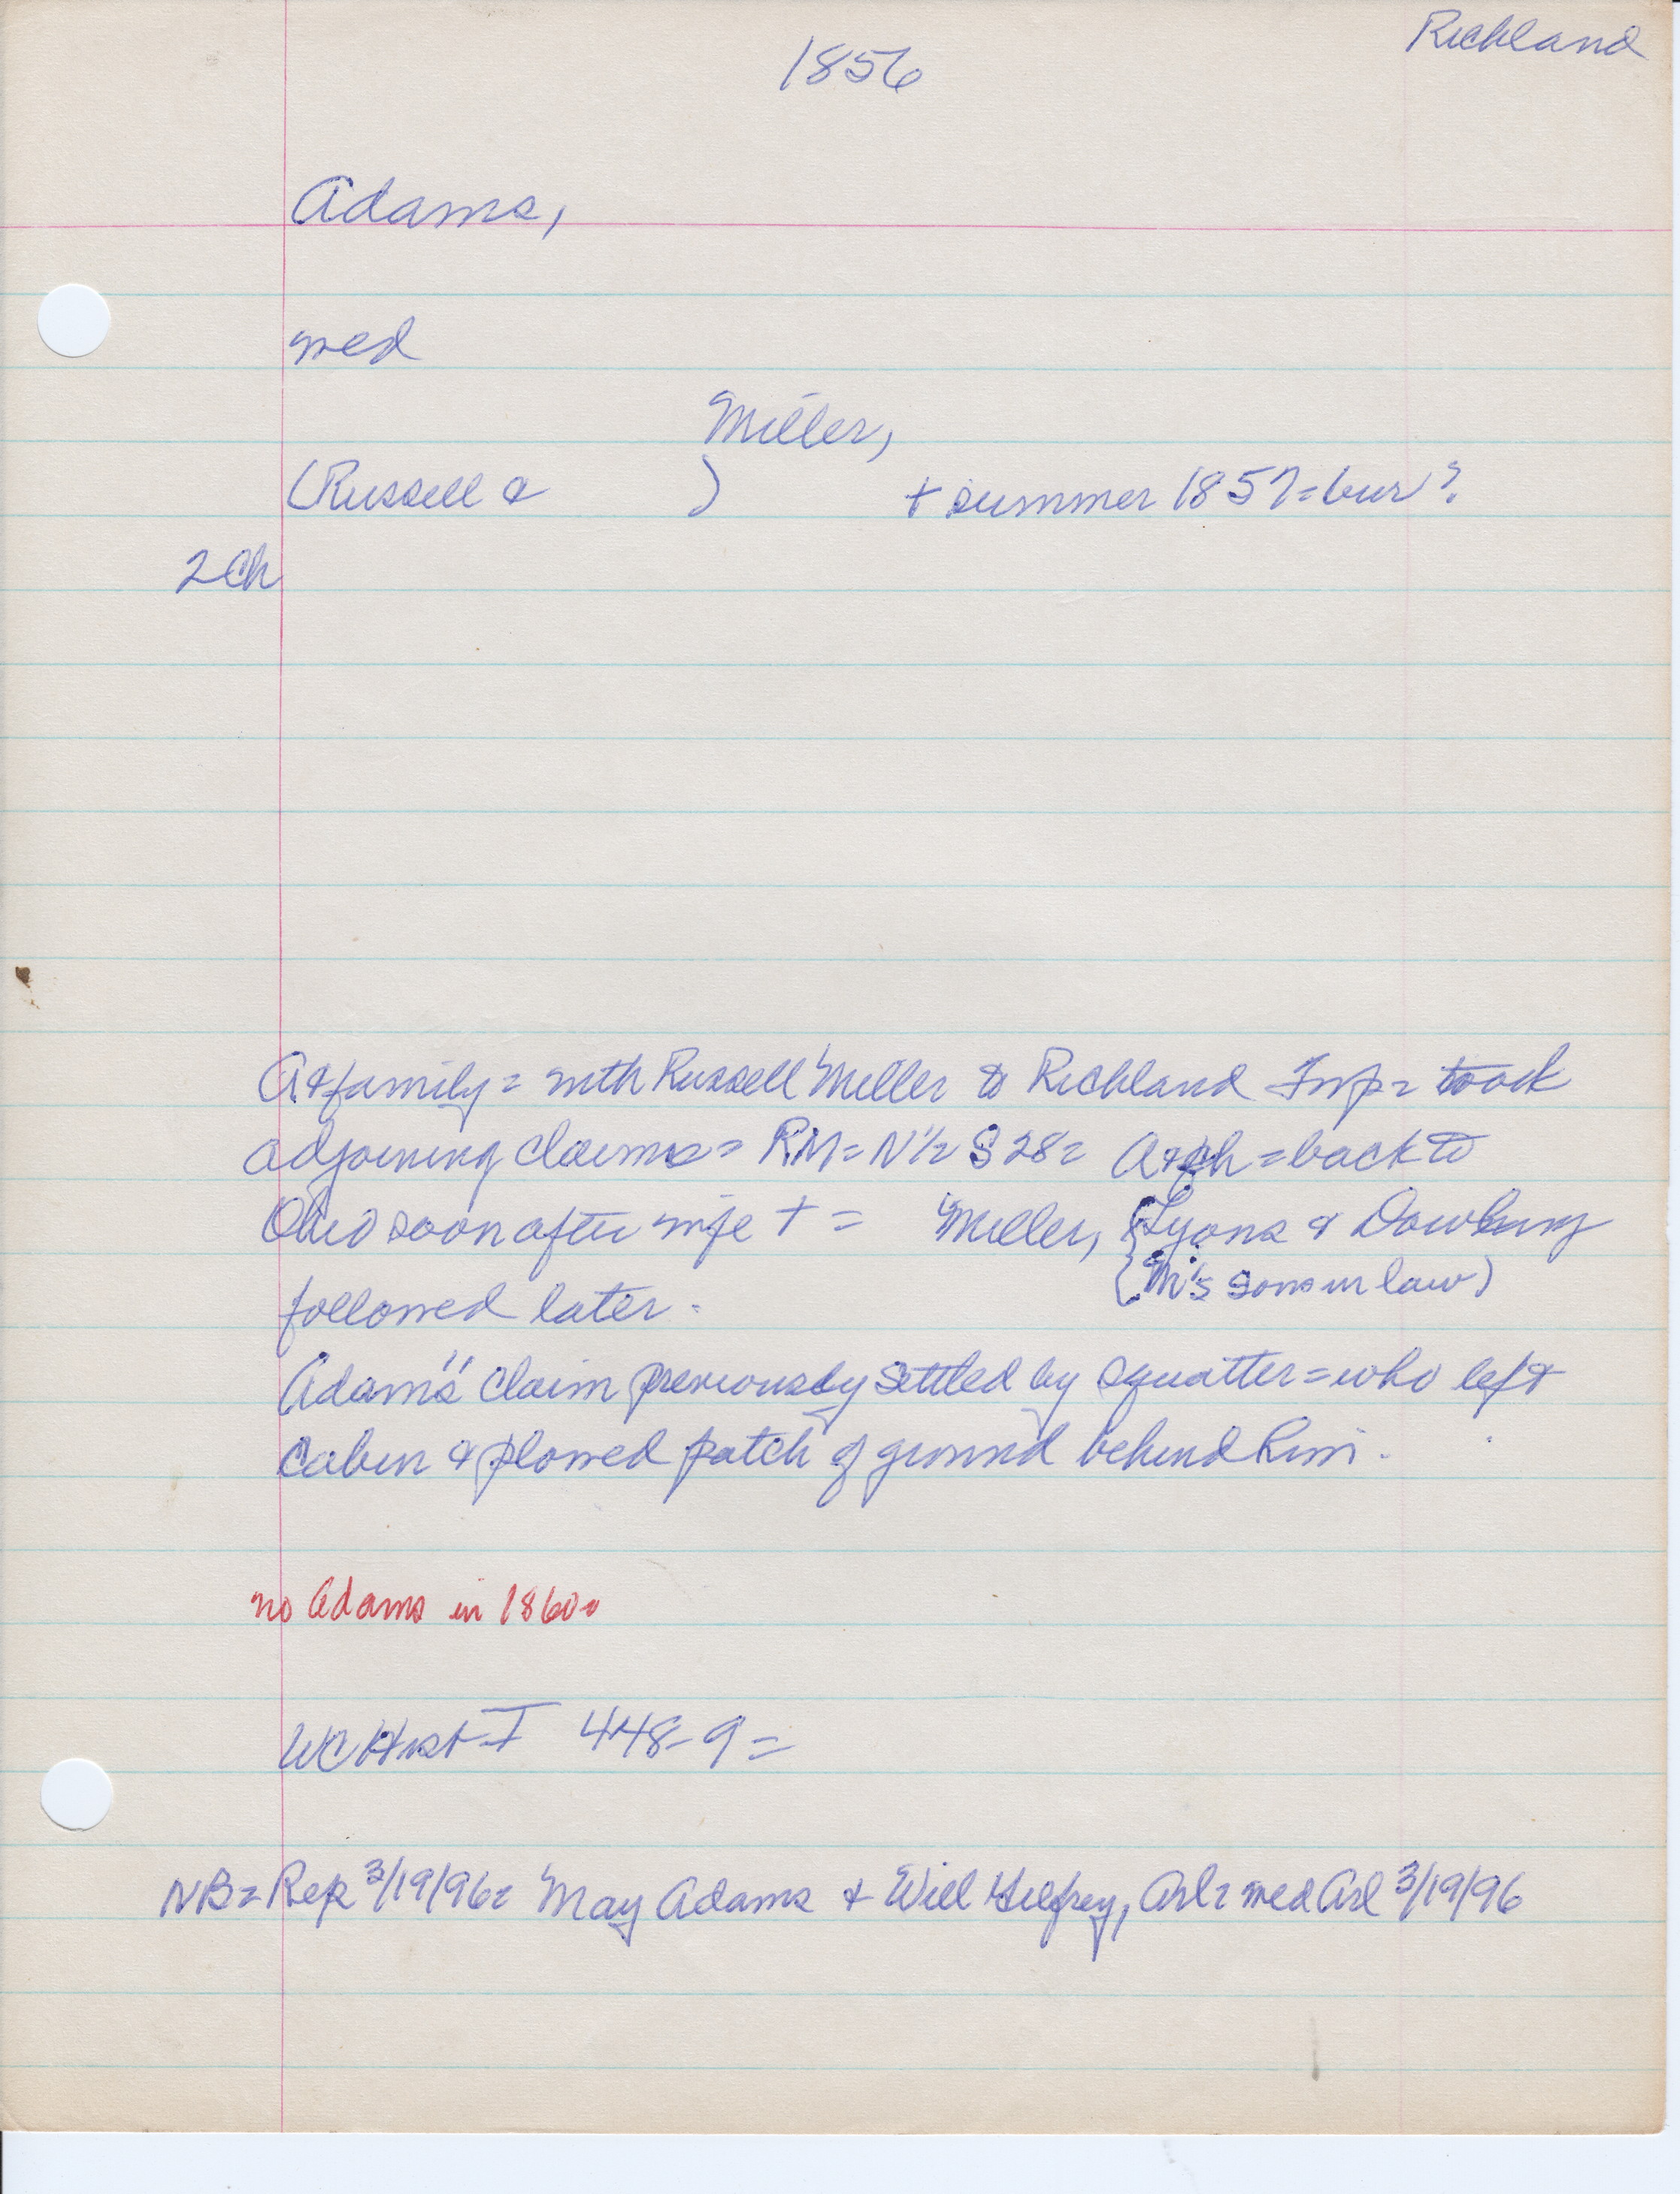 Richland
1856
Adams,
med
Miller,
(Russell & ) + summer 1857 = bur?
2 Ch
A & family = with Russell Miller to Richland Twp = took
adjoining claims = RM = N 1/2 S 28 = A & ch = back to
Ohio soon after wife + = Miller, {Lyons &
(M's sons in law)
followed later.
Adams' claim previously settled by squatter = who left
cabin & plowed patch of ground behind him.
no Adams in 1860 =
WC Hist I 448-9 =
NB = Rep 3/19/96 = May Adams & Will Gilfrey, Arl = med Arl 3/19/96